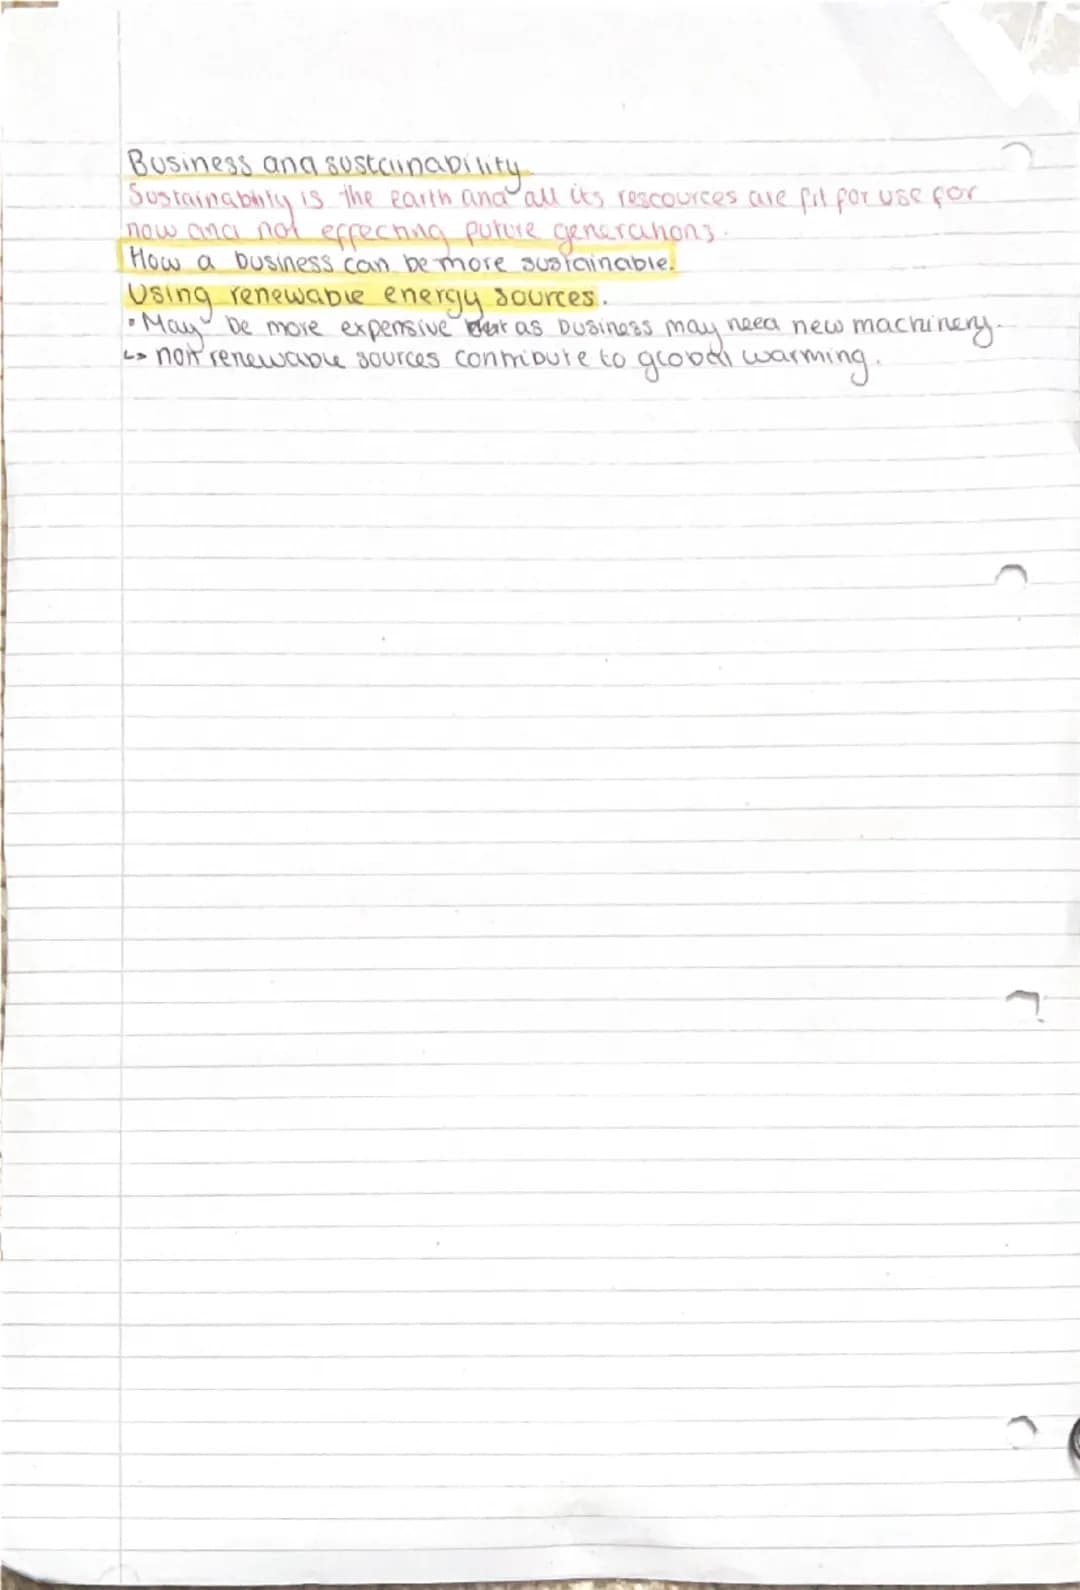 Business and sustainability
Sustainability is the earth and all its rescources are fit for use for
now and not effecting future generations.
How a business can be more sustainable.
Using renewable energy sources.
• May be more expensive as business may need new machinery.
↳ non renewable sources contribute to global warming.